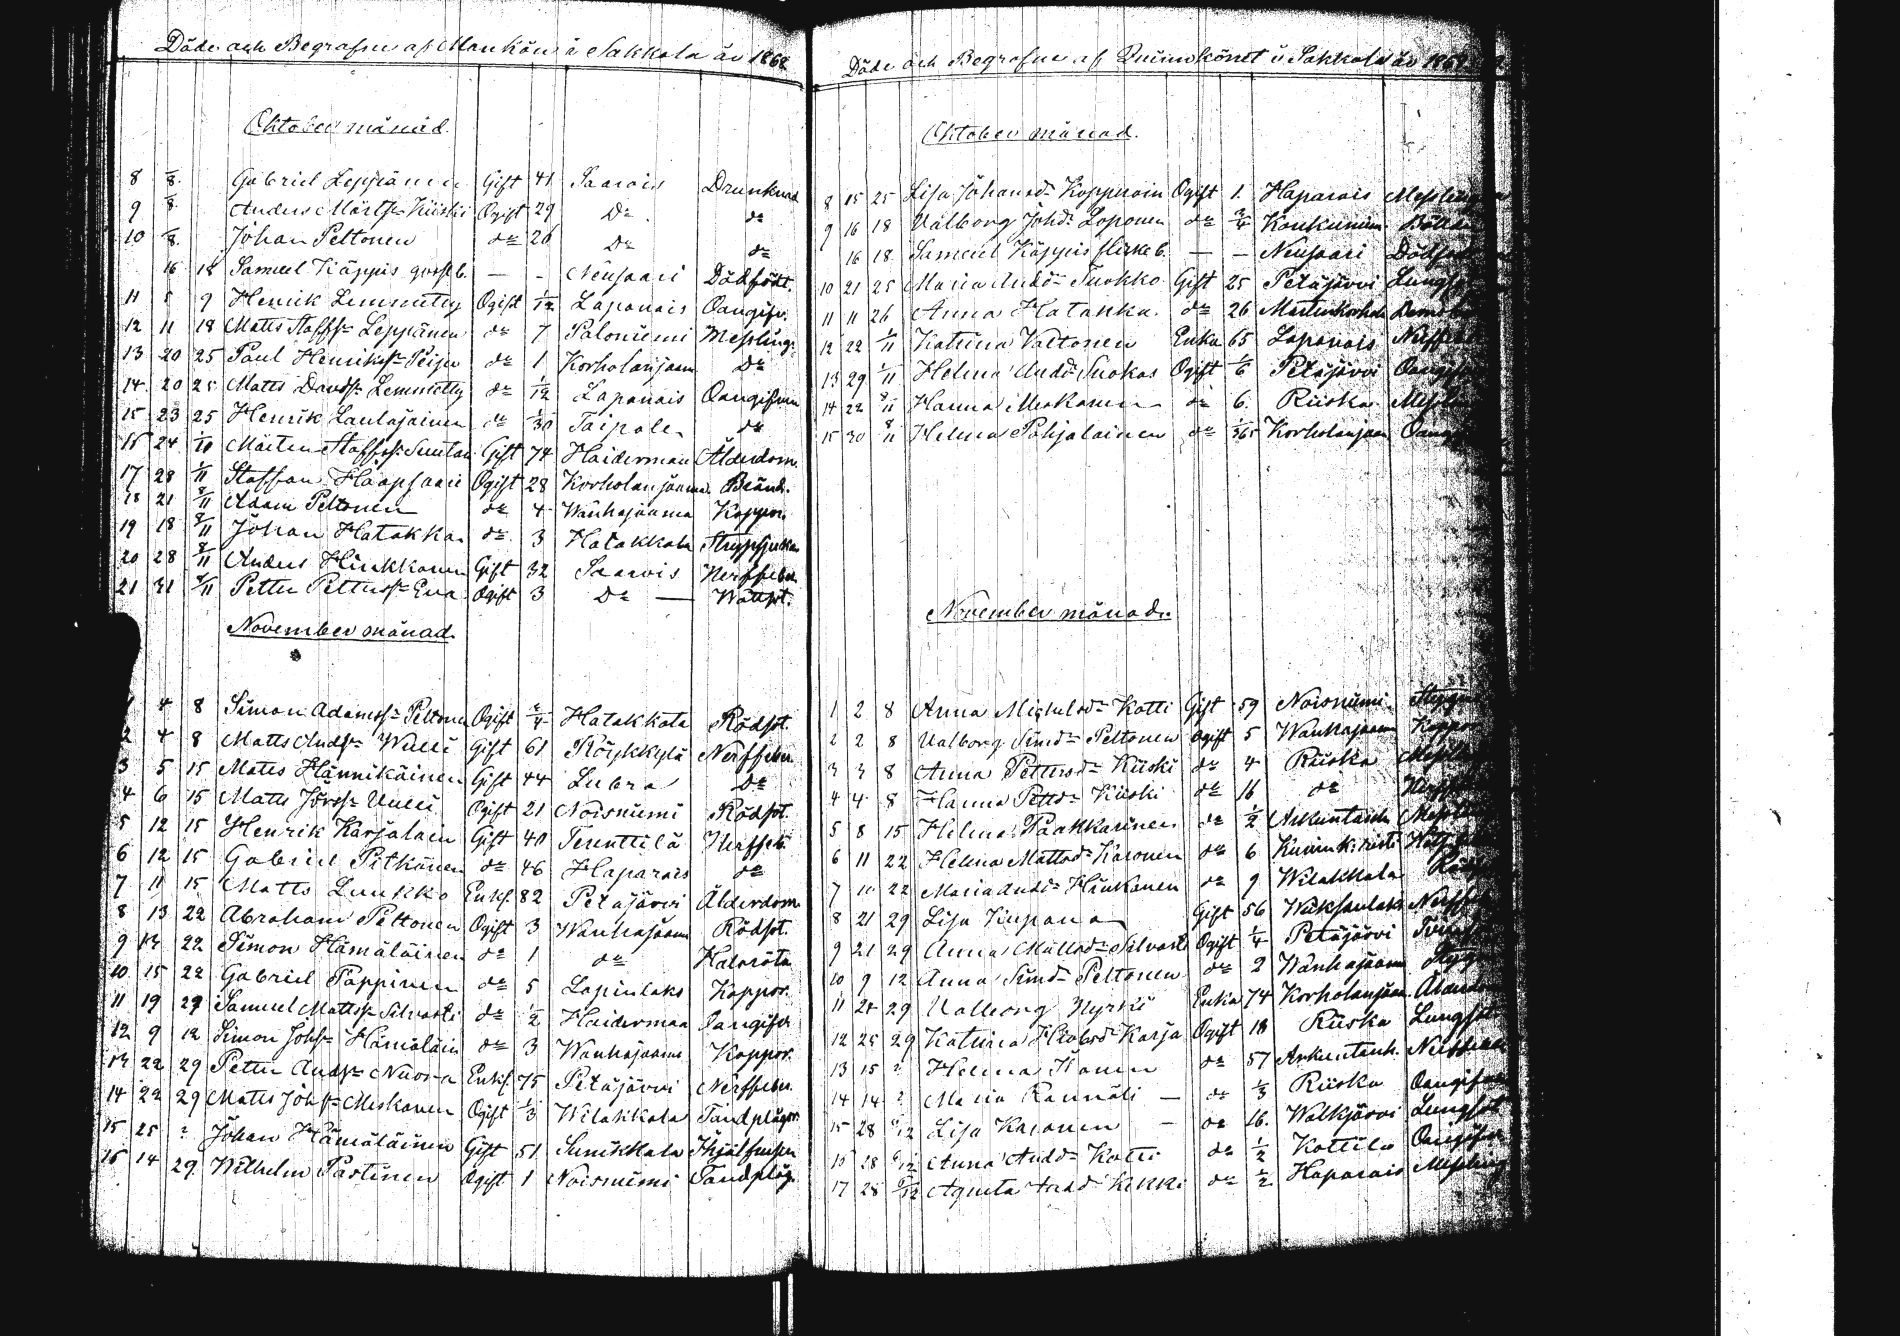 Döde och Begrafne af Mankön i Sakkola år 1868
Oktober månad.
8 8/8. Gabriel Leppänen Gift 41 Saarois Drunknad
9 8/8. Anders Mårtss Kiiski Ogift 29 Do do
10 8/8. Johan Peltonen do 26 Do do
16 18 Samuel Käppis gosseb. — - Neusaari Dödfödt.
11 5 9 Henrik Lemmetty Ogift 1/12 Lapanais Oangifv.
12 11 18 Matts Staffss Leppänen do 7 Paloniemi Messling.
13 20 25 Paul Henrikss Peiju do 1 Korholanjaam Do
14 20 25 Matts Davidss Lemmetty do 1/12 Lapanais Oangifven
15 23 25 Henrik Laulajainen do 1/30 Taipale do
16 24 1/10 Mårten Staffss Suutari Gift 74 Haiderman Ålderdom.
17 28 1/11 Staffan Haapsaari Ogift 28 Korholanjaama Bränd.
18 21 8/11 Adam Peltonen do 4 Wanhajaama Koppor.
19 18 8/11 Johan Hatakka do 3 Hatakkala Strypsjuka
20 28 8/11 Anders Hinkkanen Gift 32 Saarois Nerffeber
21 31 8/11 Petter Petterss Eva Ogift 3 Do — Wattst.
November månad.
1 4 8 Simon Adamss Peltonen Ogift 3/4 Hatakkala Rödsot.
2 4 8 Matts Andss Wulli Gift 61 Röykkylä Nerffeber
3 5 15 Matts Hännikäinen Gift 44 Lubra Do
4 6 15 Matts Jörss Uulli Ogift 21 Noisniemi Rödsot.
5 12 15 Henrik Karjalain Gift 40 Terenttilä Nerffeb.
6 12 15 Gabriel Pitkänen do 46 Haparais do
7 11 15 Matts Luukko Enkl. 82 Petäjärvi Ålderdom
8 13 22 Abraham Peltonen Ogift 3 Wanhajaama Rödsot.
9 13 22 Simon Hämäläinen do 1 do Halsröta
10 15 22 Gabriel Pappinen do 5 Lapinlaks Koppor.
11 19 29 Samuel Mattss Silvasti do 1/2 Haiderman Oangifv.
12 9 12 Simon Johss Hämäläin do 3 Wanhajaama Koppor.
13 22 29 Petter Andss Nuora Enkl. 75 Petäjärvi Nerffeber
14 22 29 Matts Johss Meskanen Ogift 1/3 Wilakkala Tandplågor
15 25 ? Johan Hämäläinen Gift 51 Sunikkala Ihjälfrusen
16 14 29 Wilhelm Pastinen Ogift 1 Noisniemi Tandplåg.
Döde och Begrafne af Quinnkönet i Sakkola år 1868
Oktober månad.
8 15 25 Lisa Johansd Kopperoin Ogift 1. Haparais Messling
9 16 18 Walborg Johd Loponen do 3/4 Koukuniemi
16 18 Samuel Käppis flickeb. — - Neusaari Dödfödt
10 21 25 Maria Andd Tuokko Gift 25 Petäjärvi
11 11 26 Anna Hatakka do 26 Martinkorhola
12 22 1/11 Katrina Valtonen Enka 65 Lapanais Nerffeber
13 29 1/11 Helena Andd Tuokas Ogift 1/6 Petäjärvi Oangifven
14 22 8/11 Hanna Meskanen do 6. Riiska Messling
15 30 8/11 Helena Pohjalainen do 1/365 Korholanjaam Oangif
November månad.
1 2 8 Anna Michelsd Kotti Gift 59 Noisniemi
2 2 8 Walborg Simd Peltonen Ogift 5 Wanhajaama Koppor
3 3 8 Anna Pettersd Kiiski do 4 Riiska Messling
4 4 8 Hanna Pettd Kiiski do 16 do Nerffeb
5 8 15 Helena Paakkarinen do 1/2 Arkuntanh. Messling
6 11 22 Helena Mattsd Kasonen do 6
7 10 22 Maria Andd Hinkanen do 9 Wilakkala Rödsot
8 21 29 Lisa Kiupana Gift 56 Nerffeb
9 21 29 Anna Mattsd Silvasti Ogift 1/4 Petäjärvi
10 9 12 Anna Simd Peltonen do 2 Wanhajaama
11 24 29 Walborg Nyrki Enka 74 Korholanjaam
12 25 29 Katrina Karja Ogift 18 Riiska Lungsot
13 15 ? Helena Ihanen do 57 Arkuntanh. Nerffeber
14 14 ? Maria Rannäli — do 1/3 Riiska Oangifven
15 28 6/12 Lisa Kasonen — do 16. Walkjärvi Lungsot
16 28 6/12 Anna Andd Kotti do 1/2 Kottila Oangifven
17 28 6/12 Agneta Andd Kekki do 1/2 Haparais Messling